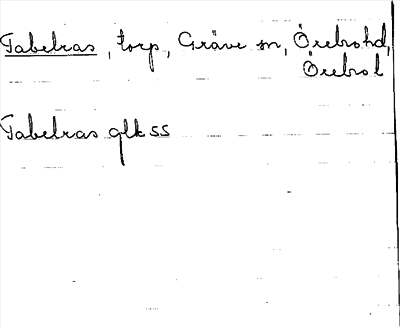 Tabelras, torp, Gräve sn, Örebro hd,
Örebro l
Tabelras glk 55